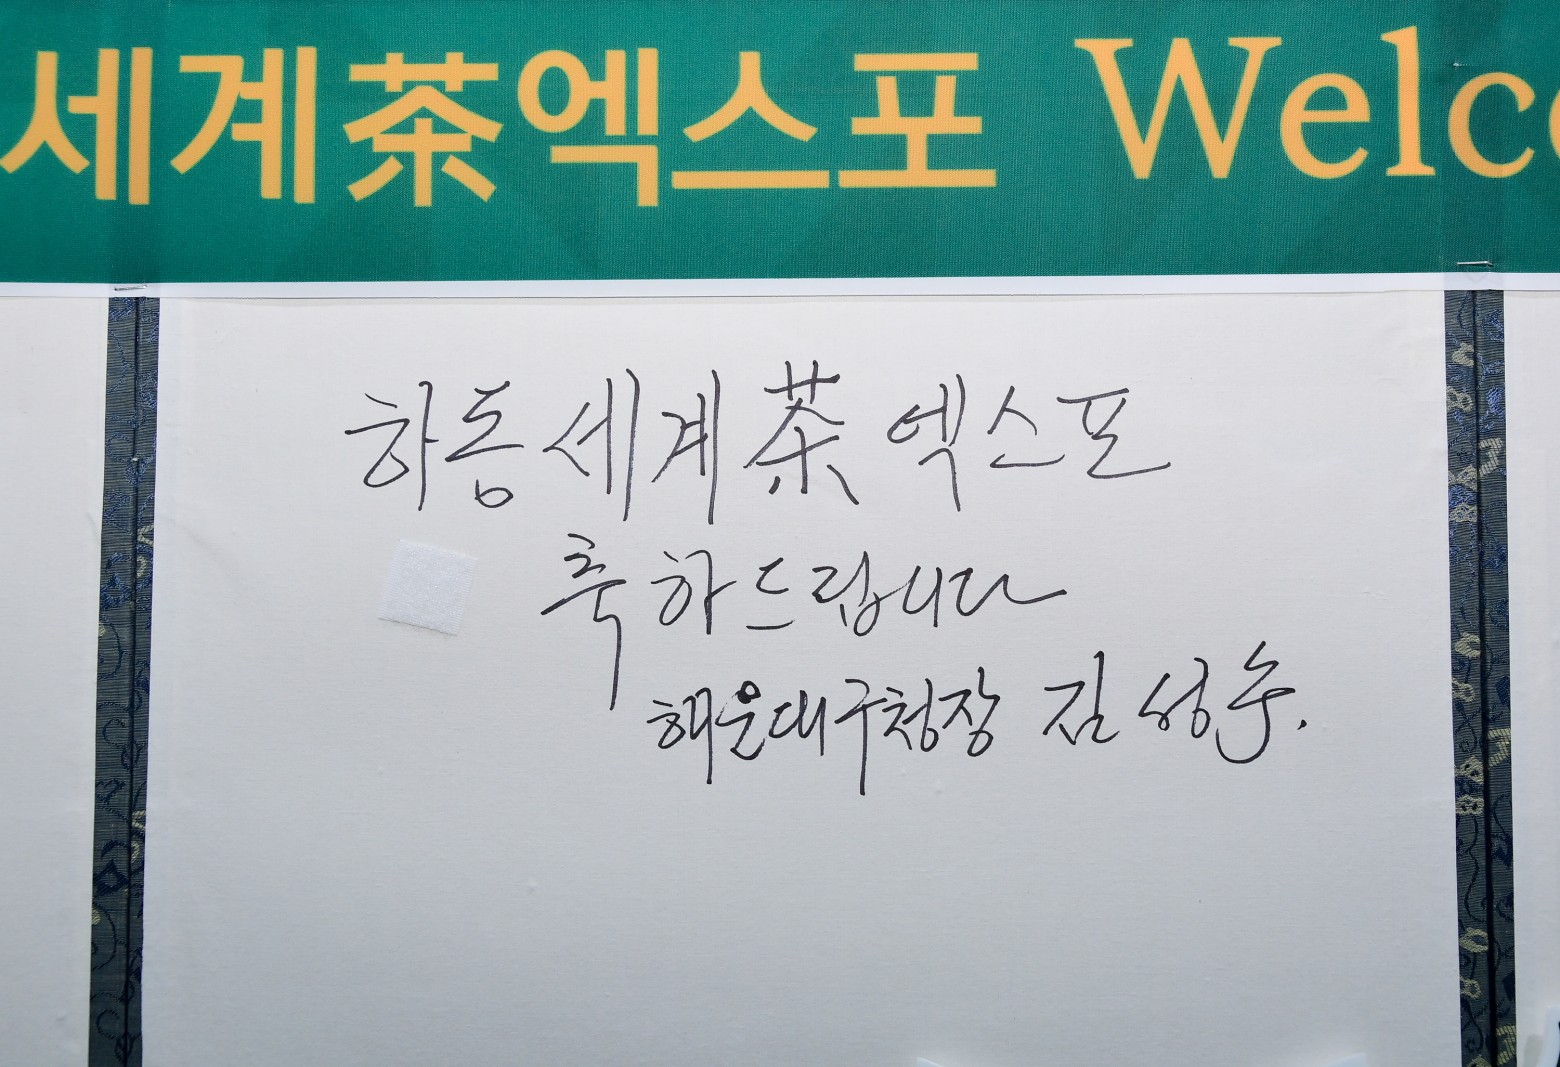 세계茶엑스포 Welco
하동세계茶엑스포
축하드립니다
해운대구청장 김성수.